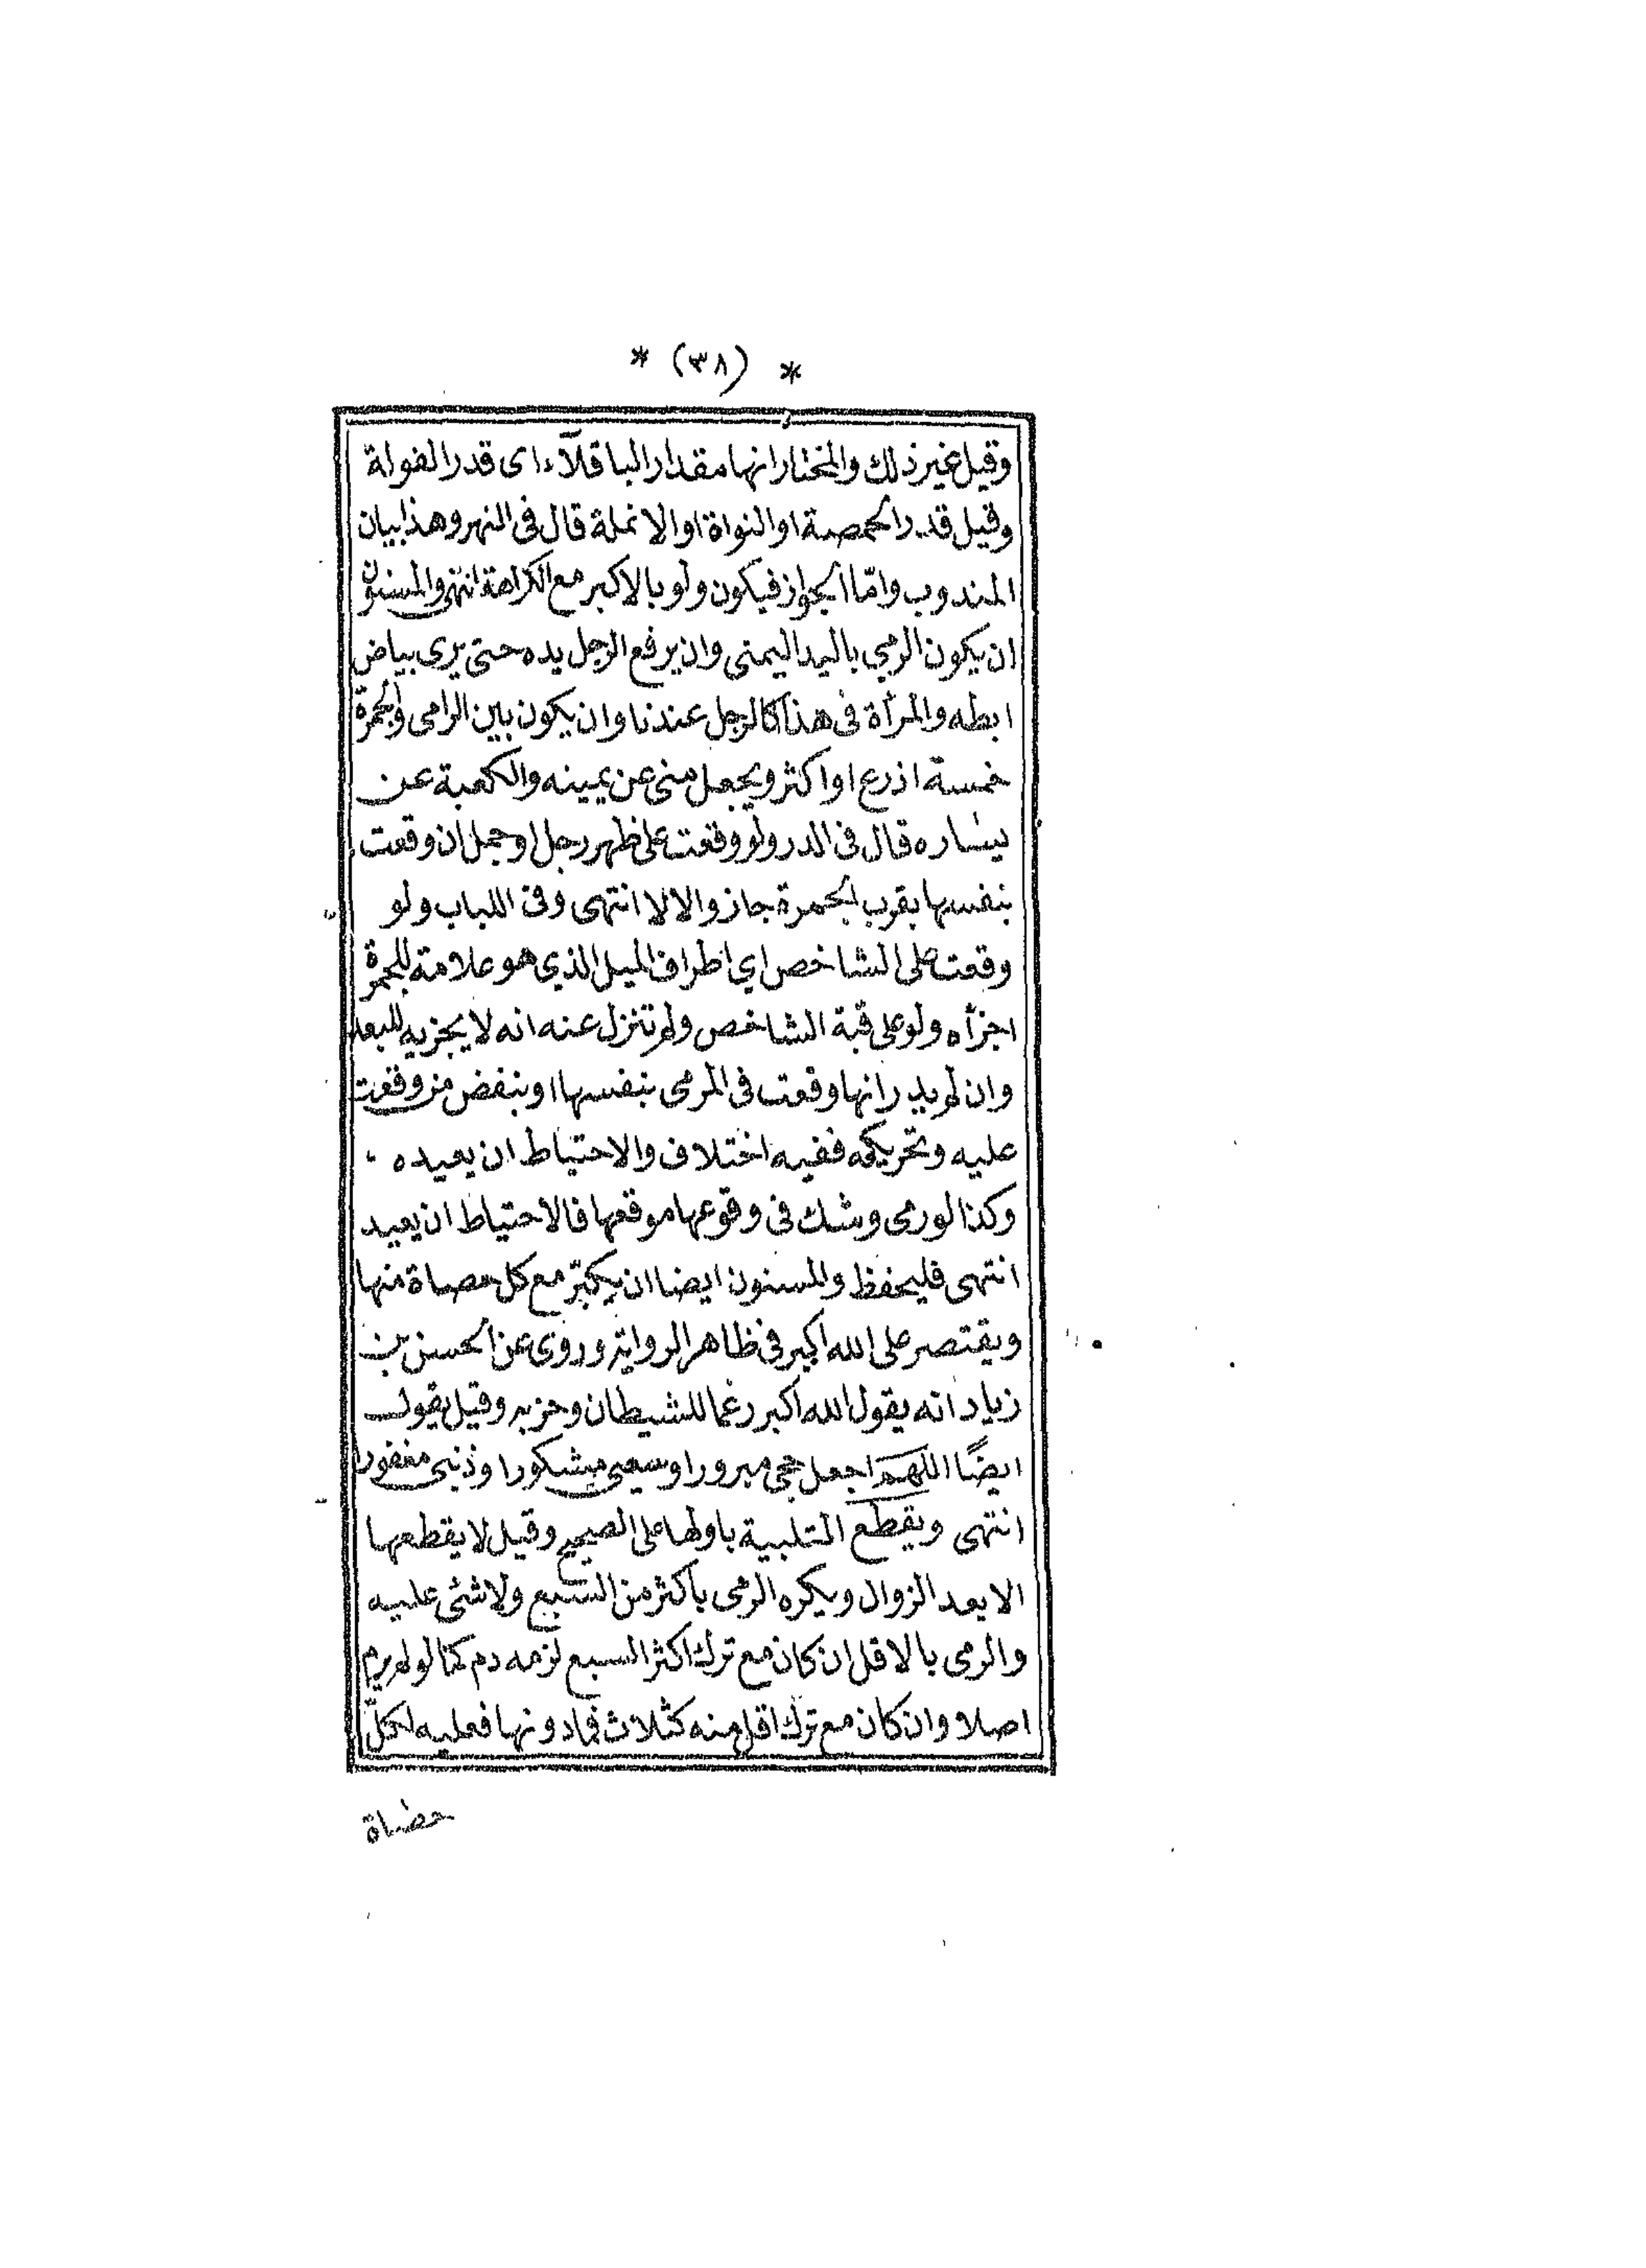 * (٣٨) *
وقيل غير ذلك والمختار انها مقدار الباقلآء اى قدر الفولة
وقيل قدر الحمصة او النواة او الانملة قال فى النهر وهذا بيان
المندوب وامّا الجواز فيكون ولو بالاكبر مع الكراهة انتهى والمسنون
ان يكون الرمي باليد اليمنى وان يرفع الرجل يده حتى يرى بياض
ابطه والمرأة فى هذا كالرجل عندنا وان يكون بين الرامى والجمرة
خمسة اذرع او اكثر ويجعل منى عن يمينه والكعبة عن
يساره قال فى الدر ولو وقعت على ظهر رجل او جمل ان وقعت
بنفسها بقرب الجمرة جاز والا لا انتهى وفى اللباب ولو
وقعت على الشاخص اي اطراف الميل الذي هو علامة للجمرة
اجزأه ولو على قبة الشاخص ولم تنزل عنه انه لا يجزيه للبعد
وان لم يدر انها وقعت فى المرمى بنفسها او بنفض من وقعت
عليه وتحريكه ففيه اختلاف والاحتياط ان يعيده
وكذا لو رمى وشك فى وقوعها موقعها فالاحتياط ان يعيد
انتهى فليحفظ والمسنون ايضا ان يكبّر مع كل حصاة منها
ويقتصر على الله اكبر فى ظاهر الرواية وروى عن الحسن بن
زياد انه يقول الله اكبر رغما للشيطان وحزبه وقيل يقول
ايضًا اللهم اجعل حجى مبرورا وسعيى مشكورا وذنبى مغفورا
انتهى ويقطع التلبية باولها على الصحيح وقيل لا يقطعها
الا بعد الزوال ويكره الرمى باكثر من السبع ولا شئى عليه
والرمى بالاقل ان كان مع ترك اكثر السبع لزمه دم كما لو لم يرم
اصلا وان كان مع ترك اقل منه كثلاث فما دونها فعليه لكلّ
حصاة